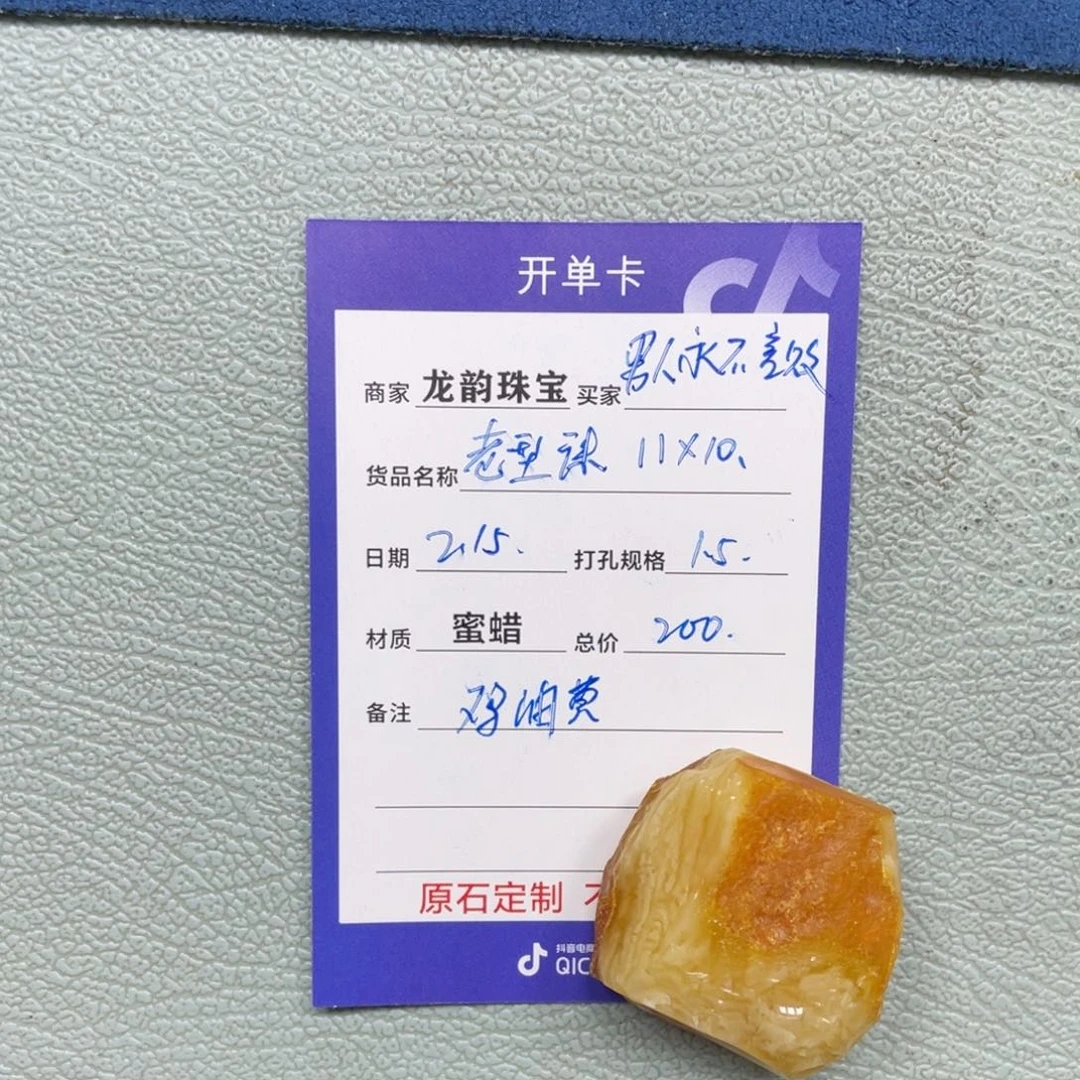 开单卡
商家 龙韵珠宝 买家 男人永不言败
货品名称 老型珠 11X10、
日期 2.15. 打孔规格 1.5.
材质 蜜蜡 总价 200.
备注 鸡油黄
原石定制
抖音电商
QIC